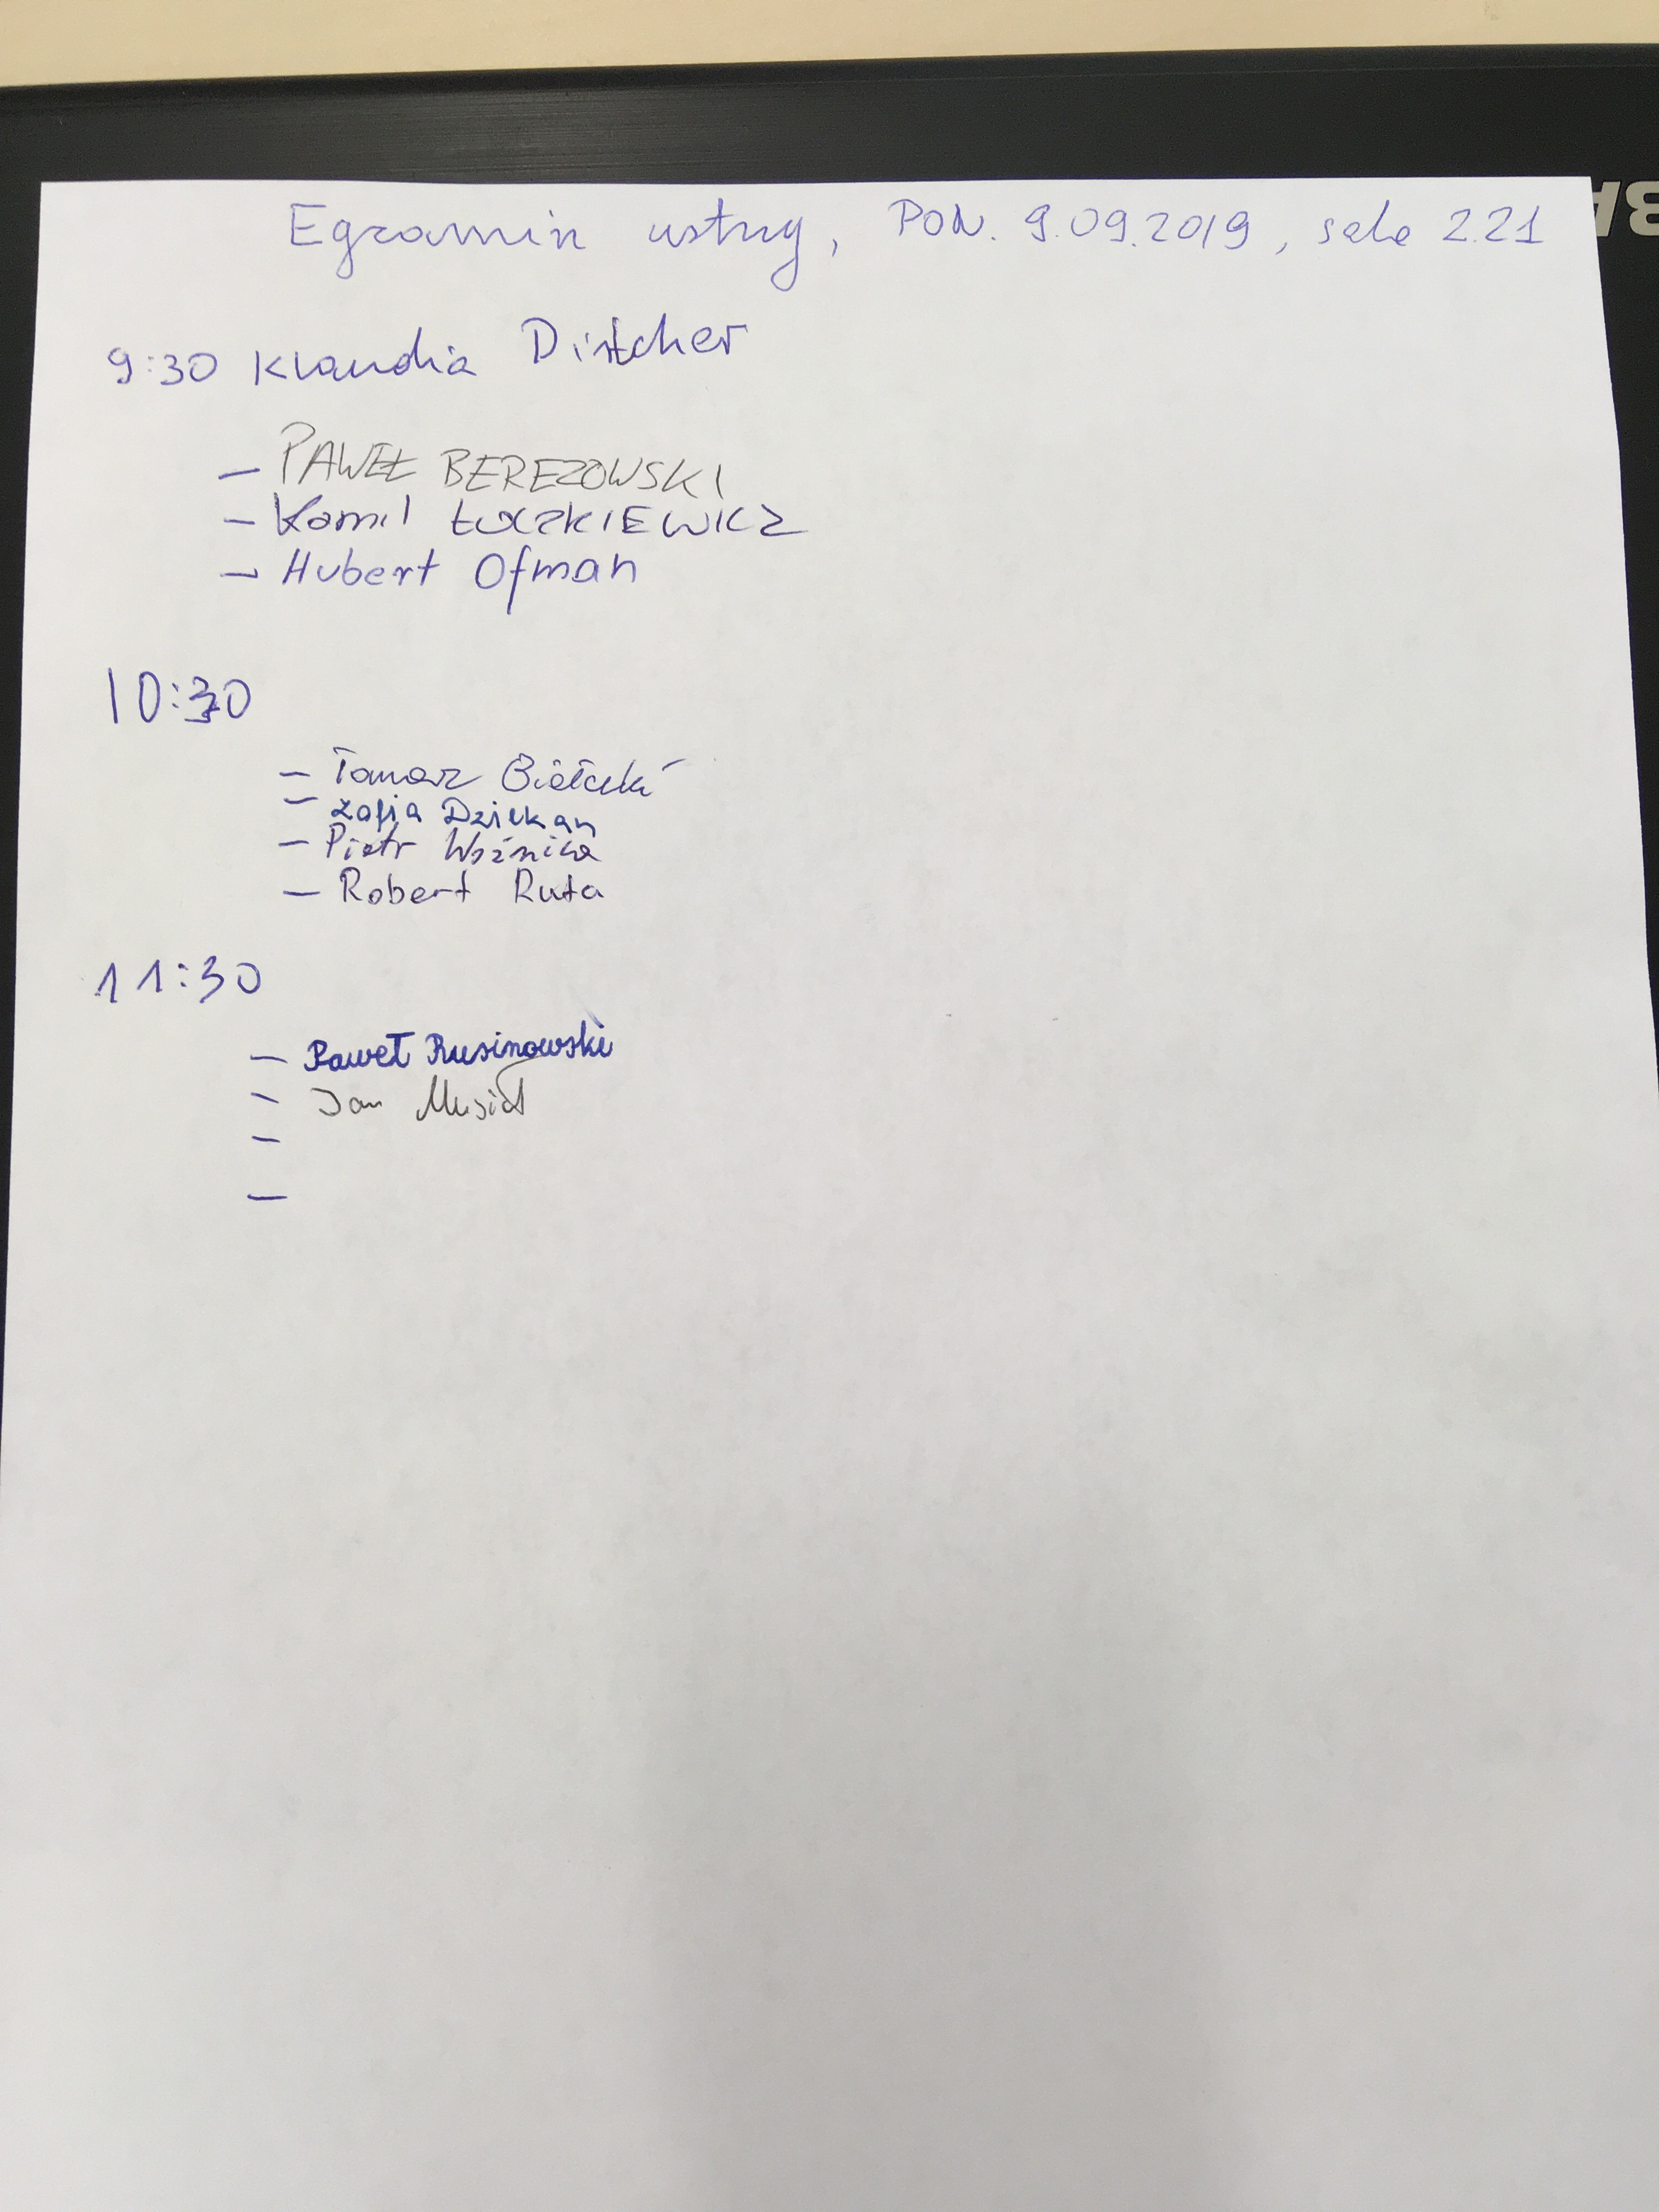 Egzamin ustny, PON. 9.09.2019, sala 2.21
9:30 Klaudia Distcher
- PAWEŁ BEREZOWSKI
- Kamil ŁUCZKIEWICZ
- Hubert Ofman
10:30
- Tomasz Białecki
- Zofia Dziekan
- Piotr Woźnica
- Robert Ruta
11:30
- Paweł Rusinowski
- Jan Musiał
-
-